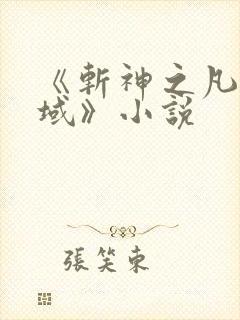 《斬神之凡
域》小說
張笑東